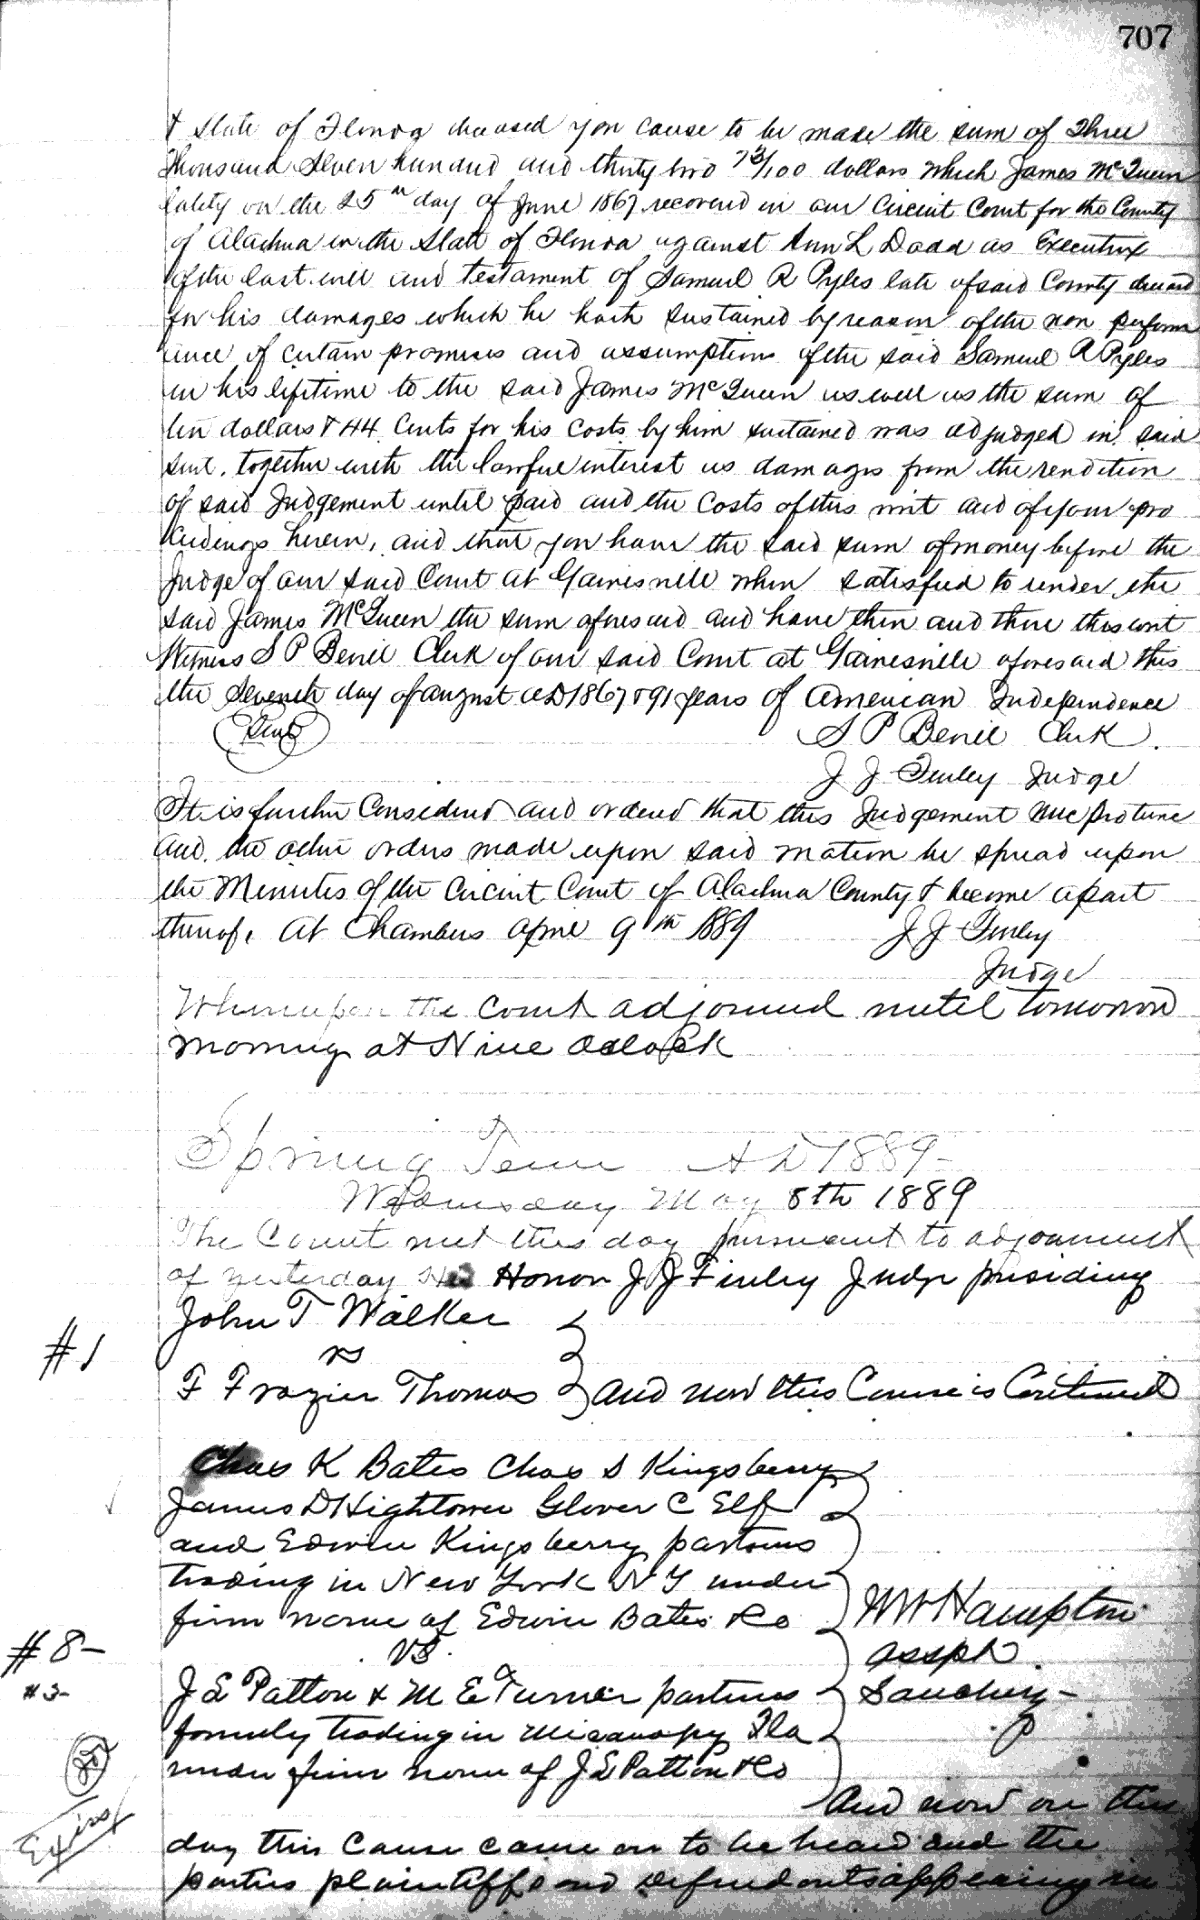 707
& State of Florida deceased you cause to be made the sum of Three
Thousand Seven hundred and thirty two 73/100 dollars which James McQueen
lately on the 25th day of June 1867 recovered in our Circuit Court for the County
of Alachua in the State of Florida against Ann L Dadd as Executrix
of the last will and testament of Samuel R Pyles late of said County deceased
for his damages which he hath sustained by reason of the non perform
ance of certain promises and assumptions of the said Samuel R Pyles
in his lifetime to the said James McQueen as well as the sum of
ten dollars & 44 Cents for his costs by him sustained was adjudged in said
suit, together with the lawful interest as damages from the rendition
of said Judgement until paid and the costs of this writ and of your pro
ceedings herein, and that you have the said sum of money before the
Judge of our said Court at Gainesville when satisfied to render the
said James McQueen the sum aforesaid and have then and there this writ
Witness S P Benil Clerk of our said Court at Gainesville aforesaid this
the Seventh day of august AD 1867 & 91 years of American Independence
Seal S P Benil Clerk.
J J Finley Judge
It is further Considered and ordered that this Judgement nunc protunc
and the other orders made upon said motion be spread upon
the Minutes of the Circuit Court of Alachua County & become apart
thereof, At Chambers April 9th 1889 J J Finley
Judge
Whereupon the court adjourned until tomorrow
morning at Nine Oclock
Spring Term A D 1889-
Wednesday May 8th 1889
The Court met this day pursuant to adjournment
of yesterday His Honor J J Finley Judge presiding
John T Walker
#1 vs
F Frazier Thomas and now this Cause is Continued
Chas K Bates Chas S Kingsberry
James D Hightower Glover C Elf
and Edwin Kingsberry partners
trading in New York N Y under
firm name of Edwin Bates & Co W W Hampton
#8- vs. assph.
#3- J E Patton & M E Turner partners
formely trading in Micanopy Fla
under firm name of J E Patton & Co
And now on this
day this Cause came on to be heard and the
parties plaintiff and defendants appearing in